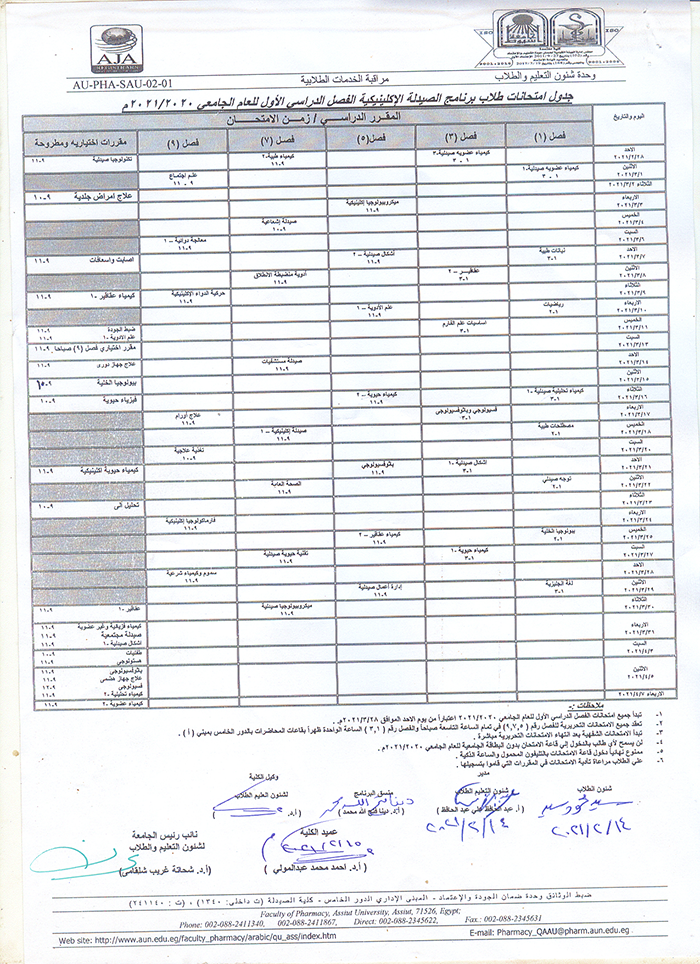 AJA
REGISTRARS
ISO
ISO
AU-PHA-SAU-02-01
مراقبة الخدمات الطلابية
وحدة شئون التعليم والطلاب
جدول امتحانات طلاب برنامج الصيدلة الإكلينيكية الفصل الدراسى الأول للعام الجامعى ٢٠٢١/٢٠٢٠م
اليوم والتاريخ
المقرر الدراسي / زمن الامتحان
فصل (١)
فصل (٣)
فصل(٥)
فصل (٧)
فصل (٩)
مقررات اختياريه ومطروحة
الاحد
٢٠٢١/٢/٢٨
كيمياء عضويه صيدلية-٣
٣-١
كيمياء طبية-٢
١١-٩
تكنولوجيا صيدلية
١١-٩
الاثنين
٢٠٢١/٣/١
كيمياء عضويه صيدلية-١
٣-١
علم اجتماع
١١-٩
الثلاثاء ٢٠٢١/٣/٢
علاج امراض جلدية
١٠-٩
الاربعاء
٢٠٢١/٣/٣
ميكروبيولوجيا إكلينيكية
١١-٩
الخميس
٢٠٢١/٣/٤
صيدلة إشعاعية
١٠-٩
السبت
٢٠٢١/٣/٦
معالجة دوائية – ١
١١-٩
الاحد
٢٠٢١/٣/٧
نباتات طبية
٣-١
أشكال صيدلية – ٢
١١-٩
اصابت واسعافات
١١-٩
الاثنين
٢٠٢١/٣/٨
عقاقير – ٢
٣-١
أدوية منضبطة الانطلاق
١١-٩
الثلاثاء
٢٠٢١/٣/٩
حركية الدواء الإكلينيكية
١١-٩
كيمياء عقاقير-١
١١-٩
الاربعاء
٢٠٢١/٣/١٠
رياضيات
٢-١
علم الأدوية – ١
١١-٩
الخميس
٢٠٢١/٣/١١
اساسيات علم الفارم
٣-١
ضبط الجودة
١١-٩
علم الادوية-١
١١-٩
السبت
٢٠٢١/٣/١٣
مقرر اختياري فصل (٩) صباحا
١١-٩
الاحد
٢٠٢١/٣/١٤
صيدلة مستشفيات
١١-٩
علاج جهاز دورى
١١-٩
الاثنين
٢٠٢١/٣/١٥
بيولوجيا الخلية
١٠-٩
الثلاثاء
٢٠٢١/٣/١٦
كيمياء تحليلية صيدلية-١
٣-١
كيمياء حيوية – ٢
١١-٩
فيزياء حيوية
١٠-٩
الاربعاء
٢٠٢١/٣/١٧
فسيولوجي وباثوفسيولوجي
٣-١
علاج أورام
١١-٩
الخميس
٢٠٢١/٣/١٨
مصطلحات طبية
٢-١
صيدلة إكلينيكية – ١
١١-٩
السبت
٢٠٢١/٣/٢٠
تغذية علاجية
١٠-٩
الاحد
٢٠٢١/٣/٢١
اشكال صيدلية-١
٣-١
باثوفسيولوجي
١١-٩
كيمياء حيوية اكلينيكية
١١-٩
الاثنين
٢٠٢١/٣/٢٢
توجه صيدلي
٢-١
الصحة العامة
١١-٩
الثلاثاء
٢٠٢١/٣/٢٣
تحليل آلى
١٠-٩
الاربعاء
٢٠٢١/٣/٢٤
فارماكولوجيا إكلينيكية
١١-٩
الخميس
٢٠٢١/٣/٢٥
بيولوجيا الخلية
٢-١
كيمياء عقاقير – ٢
١١-٩
السبت
٢٠٢١/٣/٢٧
كيمياء حيوية-١
٣-١
تقنية حيوية صيدلية
١١-٩
الاحد
٢٠٢١/٣/٢٨
سموم وكيمياء شرعية
١١-٩
الاثنين
٢٠٢١/٣/٢٩
لغة انجليزية
٣-١
إدارة أعمال صيدلية
١١-٩
الثلاثاء
٢٠٢١/٣/٣٠
ميكروبيولوجيا صيدلية
١١-٩
عقاقير-١
١١-٩
الاربعاء
٢٠٢١/٣/٣١
كيمياء فزيائية وغير عضوية
١١-٩
صيدلة مجتمعية
١١-٩
اشكال صيدلية-١
١١-٩
السبت
٢٠٢١/٤/٣
طفيليات
١٠-٩
هستولوجي
١١-٩
الاثنين
٢٠٢١/٤/٥
باثوفسيولوجي
١١-٩
علاج جهاز هضمى
١١-٩
فسيولوجي
١١-٩
كيمياء تحليلية-٢
١١-٩
الاربعاء ٢٠٢١/٤/٧
كيمياء عضوية-٢
١١-٩
ملاحظات :-
١- تبدأ جميع امتحانات الفصل الدراسي الأول للعام الجامعي ٢٠٢١/٢٠٢٠ اعتباراً من يوم الاحد الموافق ٢٠٢١/٣/٢٨م.
٢- تعقد جميع الامتحانات التحريرية للفصل رقم (٩,٧,٥) في تمام الساعة التاسعة صباحا والفصل رقم (٣,١) الساعة الواحدة ظهراً بقاعات المحاضرات بالدور الخامس بمبني (أ)
٣- تبدأ الامتحانات الشفهية بعد انتهاء الامتحانات التحريرية مباشرة.
٤- لن يسمح لأي طالب بالدخول إلي قاعة الامتحان بدون البطاقة الجامعية للعام الجامعي ٢٠٢١/٢٠٢٠م.
٥- ممنوع نهائياً دخول قاعة الامتحانات بالتليفون المحمول والساعة الذكية.
٦- علي الطلاب مراعاة تأدية الامتحانات في المقررات التي قاموا بتسجيلها.
شئون الطلاب
٢٠٢١/٢/١٤
مدير
شئون التعليم الطلاب
أ. عبد الحافظ علي عبد الحافظ
٢٠٢١/٢/١٤
منسق البرنامج
(أ.د. دينا فتح الله محمد)
وكيل الكلية
لشئون العليم الطلاب
(أ.د.
عميد الكلية
(أ.د. احمد محمد عبدالمولي)
نائب رئيس الجامعة
لشئون التعليم والطلاب
(أ.د. شحاتة غريب شلقامى)
ضبط الوثائق وحدة ضمان الجودة والإعتماد - المبنى الإداري الدور الخامس - كلية الصيدلة (ت داخلى: ١٣٤٠) , (ت : ٢٤١١٤٠)
Faculty of Pharmacy, Assiut University, Assiut, 71526, Egypt;
Phone: 002-088-2411340, 002-088-2411867, Direct: 002-088-2345622, Fax.: 002-088-2345631
Web site: http://www.aun.edu.eg/faculty_pharmacy/arabic/qu_ass/index.htm
E-mail: Pharmacy_QAAU@pharm.aun.edu.eg